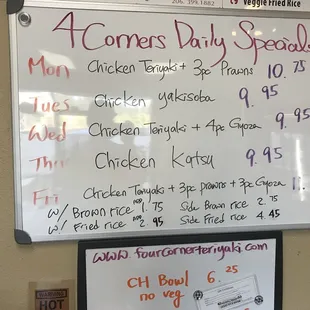 206.399.1882
Veggie Fried Rice
4 Corners Daily Specials
Mon Chicken Teriyaki + 3pc Prawns 10.75
Tues Chicken yakisoba 9.95
Wed Chicken Teriyaki + 4pc Gyoza 9.95
Thu Chicken Katsu 9.95
Fri Chicken Teriyaki + 3pc prawns + 3pc Gyoza
w/ Brown rice 1.75 Side Brown rice 2.75
w/ Fried rice 2.95 Side Fried rice 4.45
www.fourcornerteriyaki.com
CH Bowl 6.25
no veg
WARNING
HOT